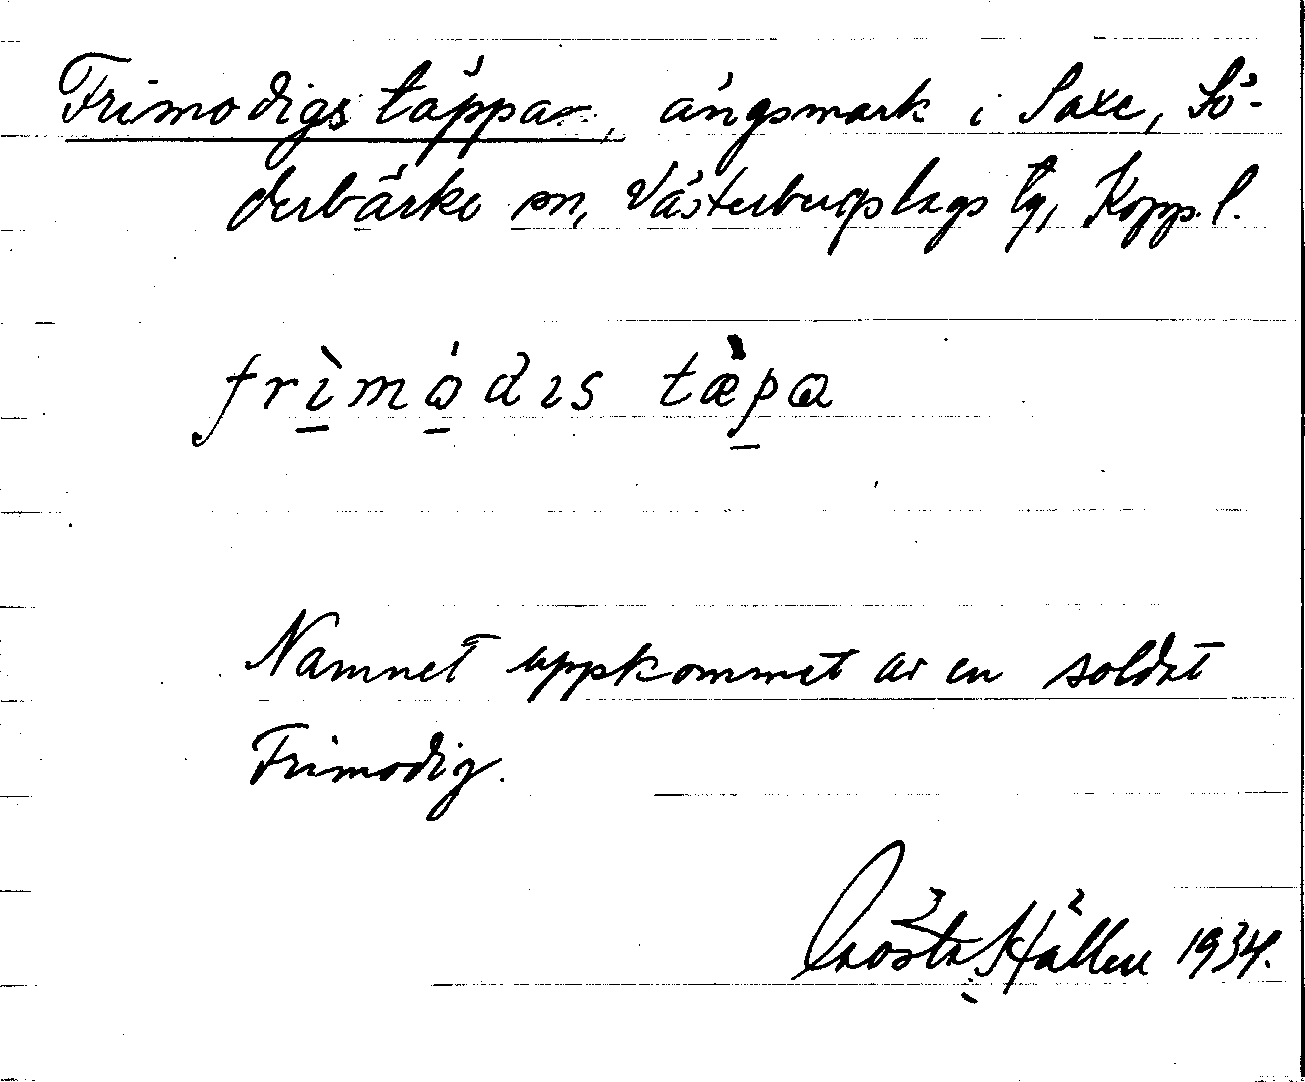 Frimodigs täppan, ängsmark i Saxe, Sö-
derbärke sn, Västerbergslags tg, Kopp. l.
frìmódıs tæ̀pa
Namnet uppkommet av en soldat
Frimodig.
Gösta Hällen 1934.